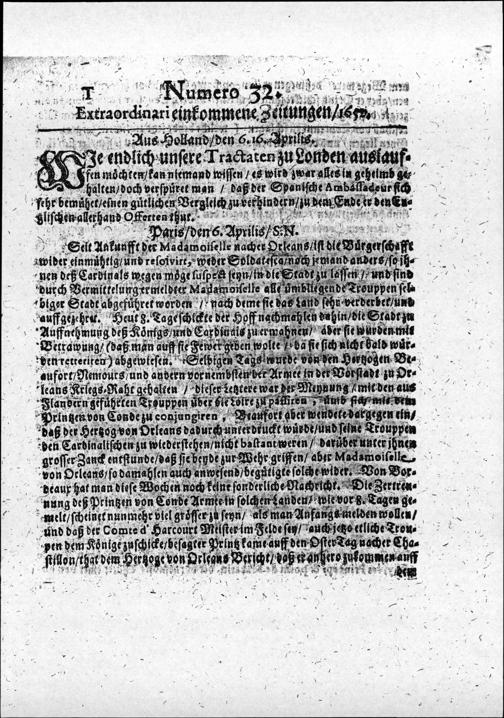 T Numero 32.
Extraordinari einkommene Zeitungen/1652.
Aus Holland/den 6.16. Aprilis.
WIe endlich unsere Tractaten zu Londen auslauf-
fen möchten/kan niemand wissen/es wird zwar alles in geheimb ge-
halten/doch verspüret man/ daß der Spanische Ambassadeur sich
sehr bemühet/einen gütlichen Vergleich zu verhindern/zu dem Ende er den En-
glischen allerhand Offerten thut.
Paris/den 6. Aprilis/S.N.
Seit Ankunfft der Madamoiselle nacher Orleans/ist die Bürgerschafft
wider einmühtig/und resolvirt, weder Soldatesca/noch jemand anders/so ih-
nen deß Cardinals wegen möge suspect seyn/in die Stadt zu lassen/ und sind
durch Vermittelung ermeldter Madamoiselle alle umbliegende Trouppen sel-
biger Stadt abgeführet worden / nach deme sie das Land sehr verderbet/und
auffgezehrt. Heut 8. Tage schickte der Hoff nachmahlen dahin/die Stadt zu
Auffnehmung deß Königs/und Cardinals zu ermahnen/ aber sie wurden mit
Betrawung/(daß man auff sie Fewer geben wolte / da sie sich nicht bald wür-
den retteriren) abgewiesen. Selbigen Tags wurde von den Hertzogen Be-
aufort/Nemours, und andern vornembsten der Armee in der Vorstadt zu Or-
leans Kriegs-Raht gehalten / dieser letztere war der Meynung/mit den aus
Flandern geführten Trouppen über die Loire zu passiren, und sich mit dem
Printzen von Conde zu conjungiren, Beaufort aber wendete dargegen ein/
daß der Hertzog von Orleans dadurch unterdrückt würde/und seine Trouppen
den Cardinalischen zu wiederstehen/nicht bastant weren/ darüber unter ihnen
grosser Zanck entstunde/daß sie beyde zur Wehr griffen/aber Madamoiselle
von Orleans/so damahlen auch anwesend/begütigte solche wider. Von Bor-
deaux hat man diese Wochen noch keine sonderliche Nachricht. Die Zertren-
nung deß Printzen von Conde Armee in solchen Landen/ wie vor 8. Tagen ge-
melt/scheinet nunmehr viel grösser zu seyn/ als man Anfangs melden wollen/
und daß der Comte d' Harcourt Meister im Felde sey/ auch jetzo etliche Trou-
pen dem Könige zuschicke/besagter Printz kame auff den OsterTag nacher Cha-
stillon/that dem Hertzoge von Orleans Bericht/daß er anhero zukommen auff
dem